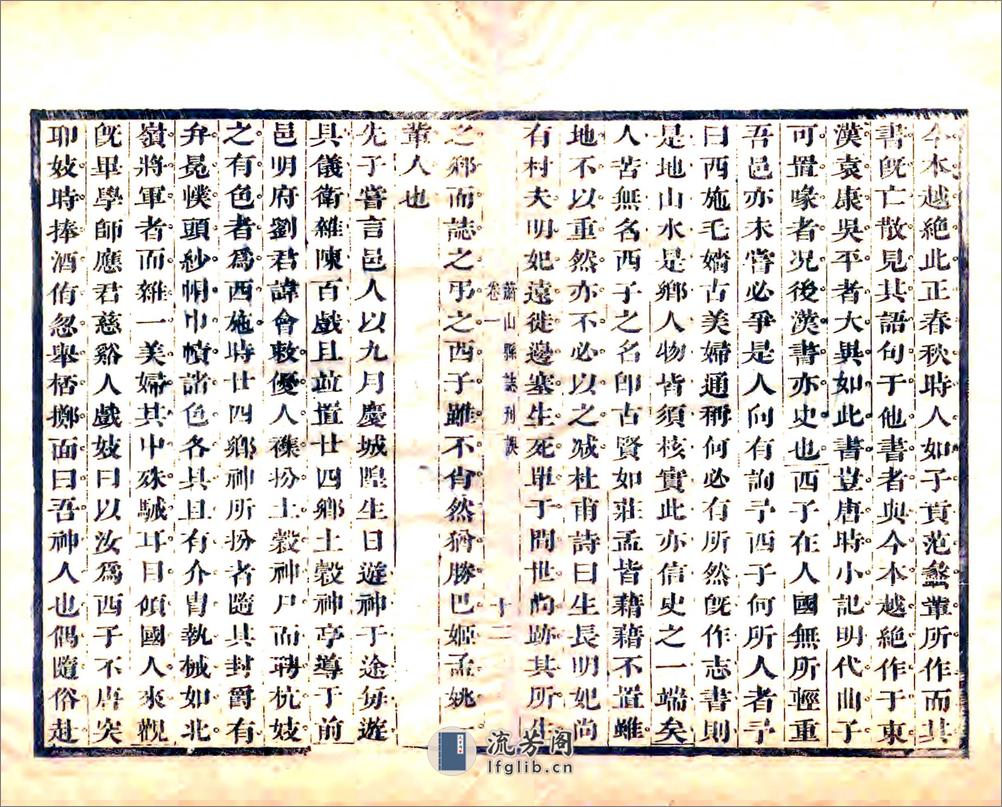 今本越絶此正春秋時人如子貢范蠡輩所作而其
書旣亡散見其語句于他書者與今本越絶作于東
漢袁康吳平者大異如此書豈唐時小記明代曲子
可置喙者况後漢書亦史也西子在人國無所輕重
吾邑亦未嘗必爭是人向有詢予西子何所人者予
曰西施毛嬙古美婦通稱何必有所然旣作志書則
是地山水是鄉人物皆須核實此亦信史之一端矣
人苦無名西子之名卽古賢如莊孟皆藉藉不置雖
地不以重然亦不必以之减杜甫詩曰生長明妃尚
有村夫明妃遠徙邊塞生死單于問世尚跡其所生
蕭山縣誌刊誤
卷一
十二
之鄉而誌之弔之西子雖不肖然猶勝巴姬孟姚一
輩人也
先子嘗言邑人以九月慶城隍生日遊神于途每遊
具儀衛雜陳百戲且並道廿四鄉土穀神亭導于前
邑明府劉君諱會敕優人襍扮土穀神尸而聘杭妓
之有色者爲西施時廿四鄉神所扮者隨其封爵有
弁冕幞頭紗帽巾幘諸色各具且有介冑執械如北
嶺將軍者而雜一美婦其中殊駴耳目傾國人來觀
旣畢學師應君慈谿人戲妓曰以汝爲西子不唐突
耶妓時捧酒侑忽舉桮擲面曰吾神人也偶隨俗赴
流芳阁
lfglib.cn